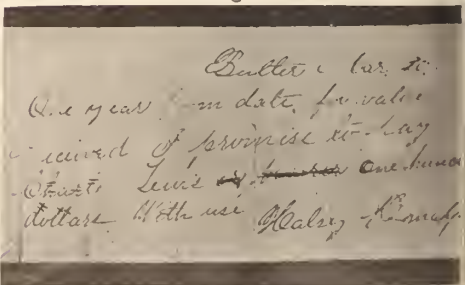 Butler
One year from date for value
received I promise to pay
Lewis or bearer One
dollars With use
Halsey